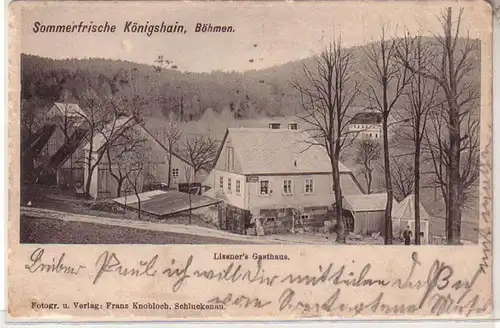 Sommerfrische Königshain, Böhmen.
Lissner's Gasthaus.
Lieber Paul ich will dir mitteilen daß
vom
Fotogr. u. Verlag: Franz Knobloch, Schluckenau.